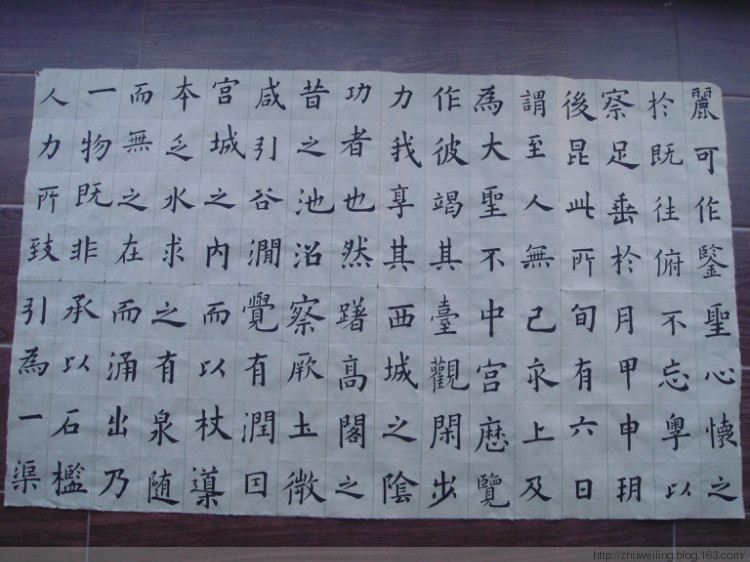 麗可作鑒聖心懷之
於既往俯不忘粵以
察足垂於月甲申朔
後昆此所旬有六日
謂至人無己亥上及
為大聖不中宮歷覽
作彼竭其臺觀閑步
力我享其西城之陰
功者也然躇高閣之
昔之池沼察厥土微
咸引谷澗覺有潤因
宮城之內而以杖導
本乏水求之有泉随
而無之在而涌出乃
一物既非承以石檻
人力所致引為一渠
http://zhuweiling.blog.163.com/